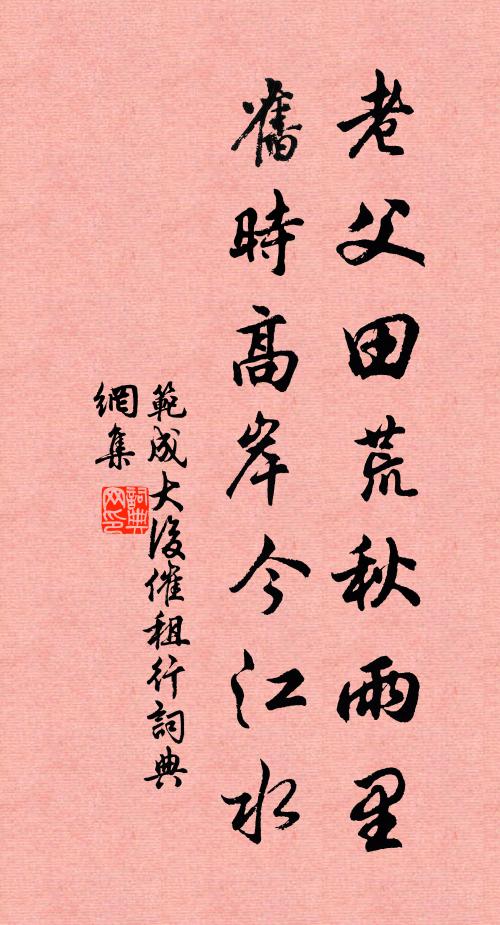 老父田荒秋雨里
舊時高岸今江水
範成大後催租行詞典
網集
詞典
网印